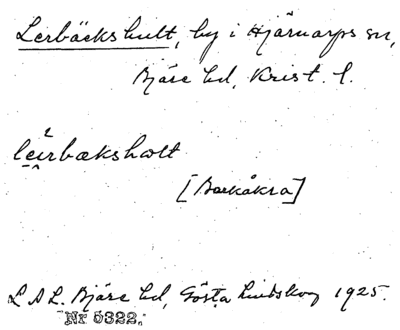 Lerbäckshult, by i Hjärnarps sn,
Bjäre hd, Krist. l.
leirbæksholt
[Barkåkra]
L A L. Bjäre hd, Gösta Lindskog 1925.
Nr 5322.